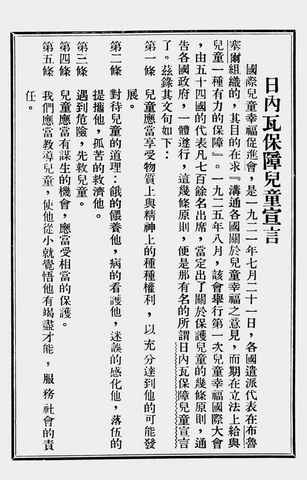 日內瓦保障兒童宣言
國際兒童幸福促進會，是一九二一年七月二十一日，各國遣派代表在布魯
塞爾組織的，其目的在求『溝通各國關於兒童幸福之意見，而期在立法上給與
兒童一種有力的保障』。一九二五年八月，該會舉行第一次兒童幸福國際大會
，由五十四國的代表凡七百餘名出席，當定出了關於保護兒童的幾條原則，通
告各國政府，一體遵行，這幾條原則，便是那有名的所謂日內瓦保障兒童宣言
了。茲錄其文句如下：
第一條　兒童應當享受物質上與精神上的種種權利，以充分達到他的可能發
展。
第二條　對待兒童的道理：餓的餵養他，病的看護他，迷誤的感化他，落伍的
提攜他，孤苦的救濟他。
第三條　遇到危險，先救兒童。
第四條　兒童應當有謀生的機會，應當受相當的保護。
第五條　我們應當教導兒童，使他從小就覺悟他有竭盡才能，服務社會的責
任。